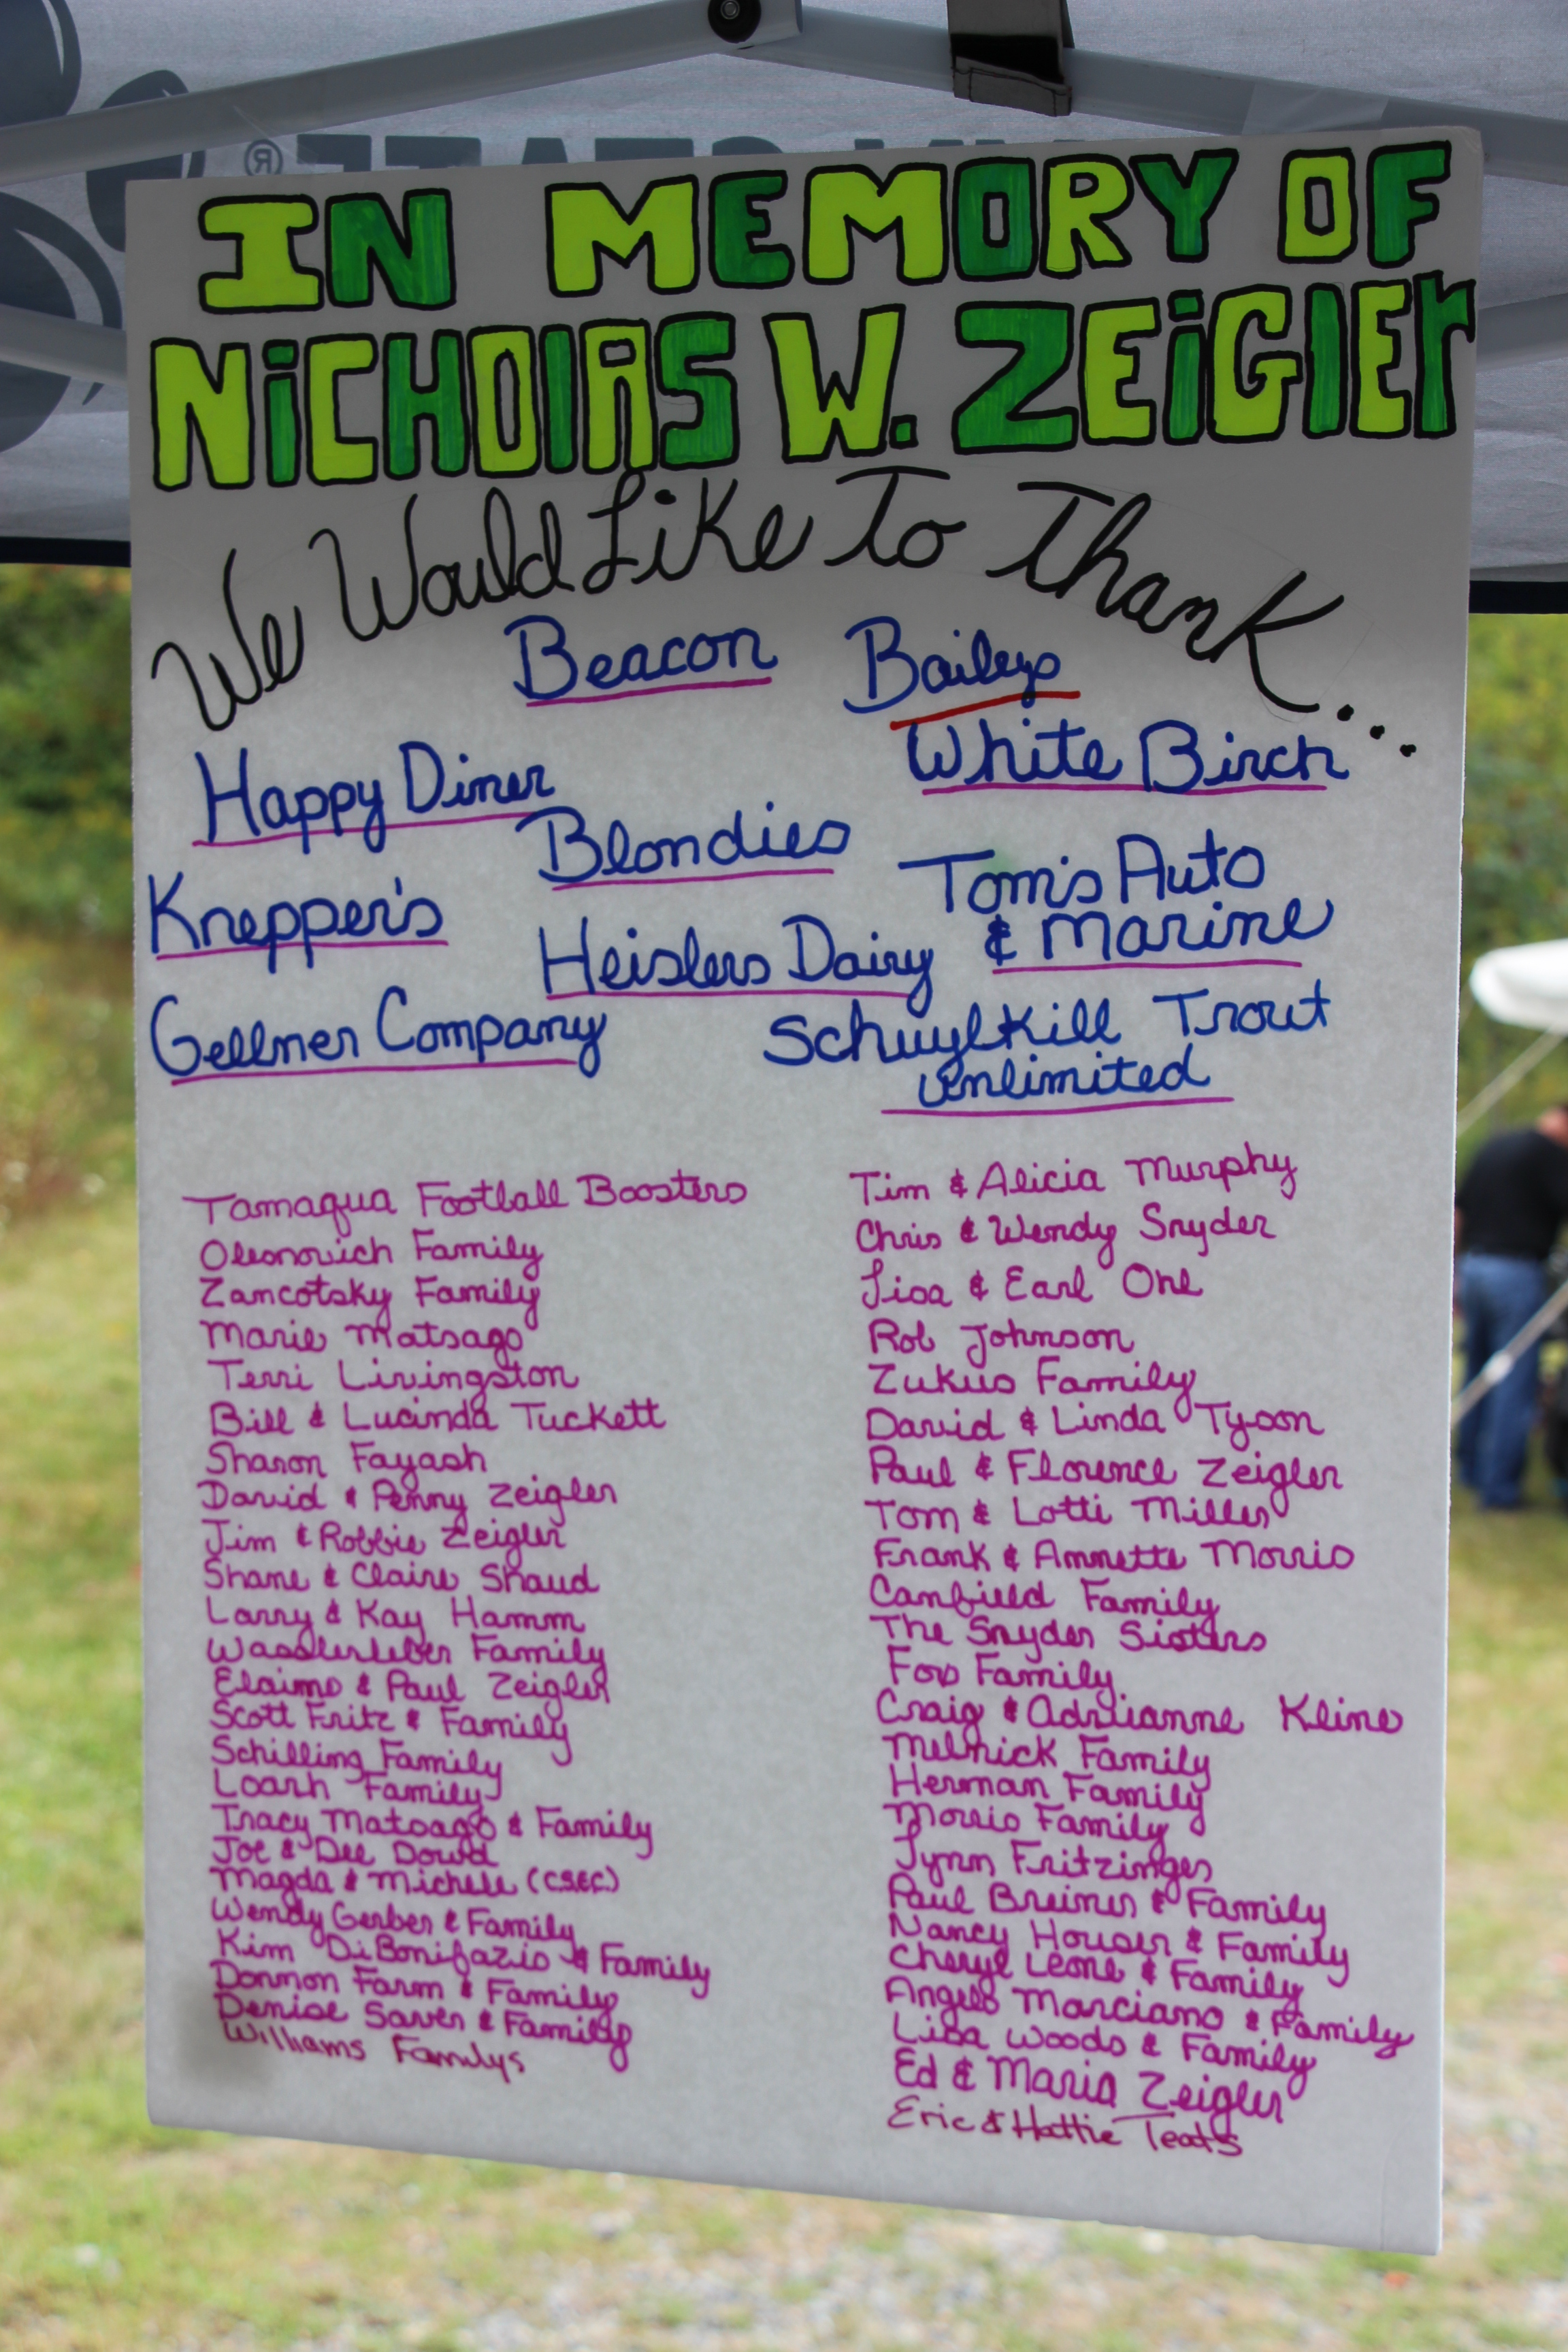 IN MEMORY OF
NICHOlAS W. ZEiGlEr
We Would Like To Thank...
Beacon
Baileys
Happy Diner
White Birch
Blondies
Knepper's
Tom's Auto
& Marine
Heislers Dairy
Gellner Company
Schuylkill Trout
Unlimited
Tamaqua Football Boosters
Oleonovich Family
Zancotsky Family
Marie Matsago
Terri Livingston
Bill & Lucinda Tuckett
Sharon Fayash
David & Penny Zeigler
Jim & Robbie Zeigler
Shane & Claire Shaud
Larry & Kay Hamm
Wasslerleber Family
Elaine & Paul Zeigler
Scott Fritz & Family
Schilling Family
Loarh Family
Tracy Matsago & Family
Joe & Dee Dowd
Magda & Michele (CSEC)
Wendy Gerber & Family
Kim DiBonifazio & Family
Donmon Farm & Family
Denise Saver & Family
Williams Familys
Tim & Alicia Murphy
Chris & Wendy Snyder
Lisa & Earl Ohl
Rob Johnson
Zukus Family
David & Linda Tyson
Paul & Florence Zeigler
Tom & Lotti Miller
Frank & Annette Morris
Canfield Family
The Snyder Sisters
Family
Craig & Adrianne Kline
Melnick Family
Herman Family
Morris Family
Lynn Fritzinger
Paul Breiner & Family
Nancy Houser & Family
Cheryl Leone & Family
Angelo Marciano & Family
Lisa Woods & Family
Ed & Maria Zeigler
Eric & Hattie Teats